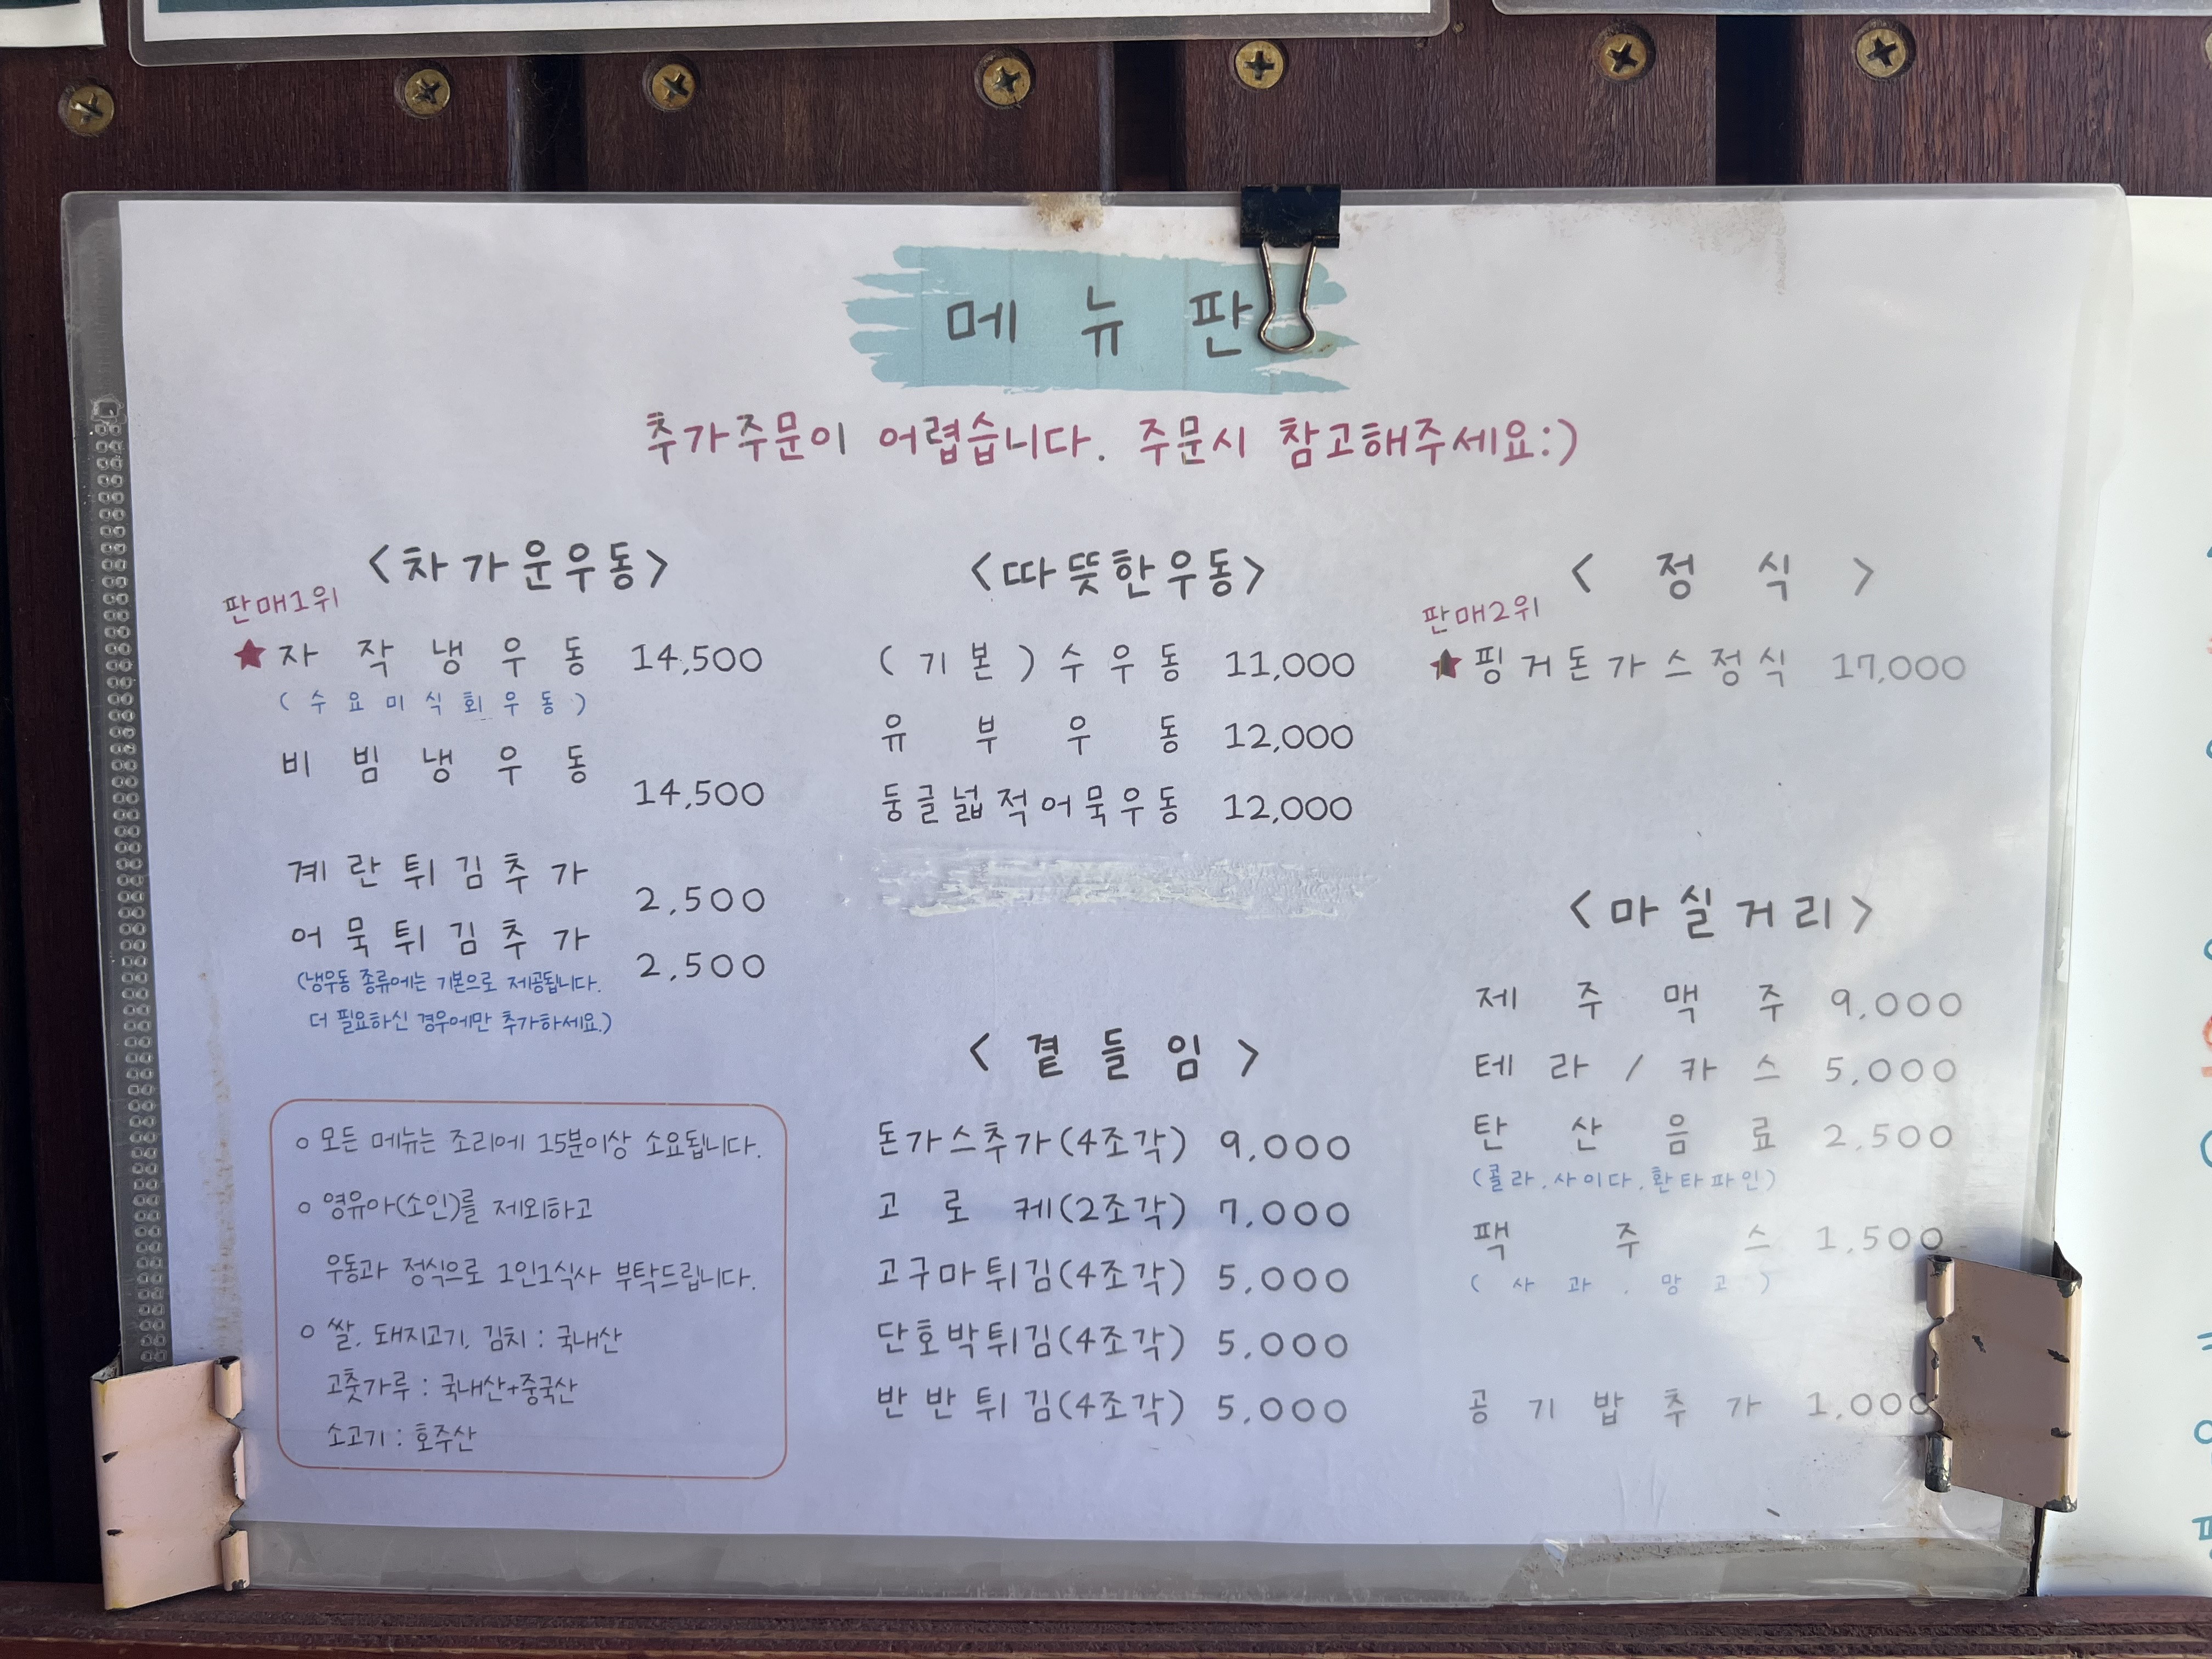 메뉴판
추가주문이 어렵습니다. 주문시 참고해주세요:)
<차가운우동>
판매1위
★자작냉우동 14,500
(수요미식회우동)
비빔냉우동 14,500
계란튀김추가 2,500
어묵튀김추가 2,500
(냉우동 종류에는 기본으로 제공됩니다.
더 필요하신 경우에만 추가하세요.)
o 모든 메뉴는 조리에 15분이상 소요됩니다.
o 영유아(소인)를 제외하고
우동과 정식으로 1인1식사 부탁드립니다.
o 쌀, 돼지고기, 김치 : 국내산
고춧가루 : 국내산+중국산
소고기 : 호주산
<따뜻한우동>
(기본)수우동 11,000
유부우동 12,000
둥글넓적어묵우동 12,000
<곁들임>
돈가스추가(4조각) 9,000
고로케(2조각) 7,000
고구마튀김(4조각) 5,000
단호박튀김(4조각) 5,000
반반튀김(4조각) 5,000
<정식>
판매2위
★핑거돈가스정식 17,000
<마실거리>
제주맥주 9,000
테라/카스 5,000
탄산음료 2,500
(콜라.사이다.환타파인)
팩주스 1,500
(사과.망고)
공기밥추가 1,000